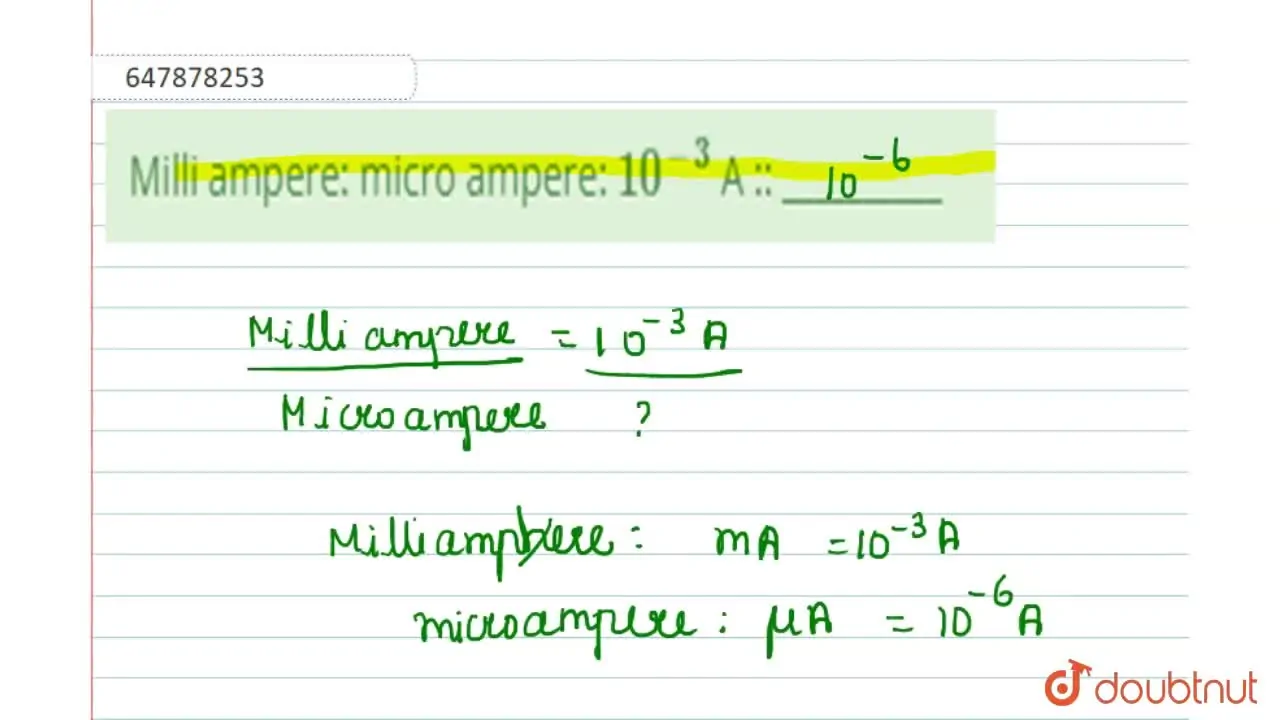 647878253
Milli ampere: micro ampere: 10⁻³ A :: 10⁻⁶
Milli ampere = 10⁻³ A
Microampere ?
Milliampere : mA = 10⁻³ A
microampere : μA = 10⁻⁶ A
doubtnut